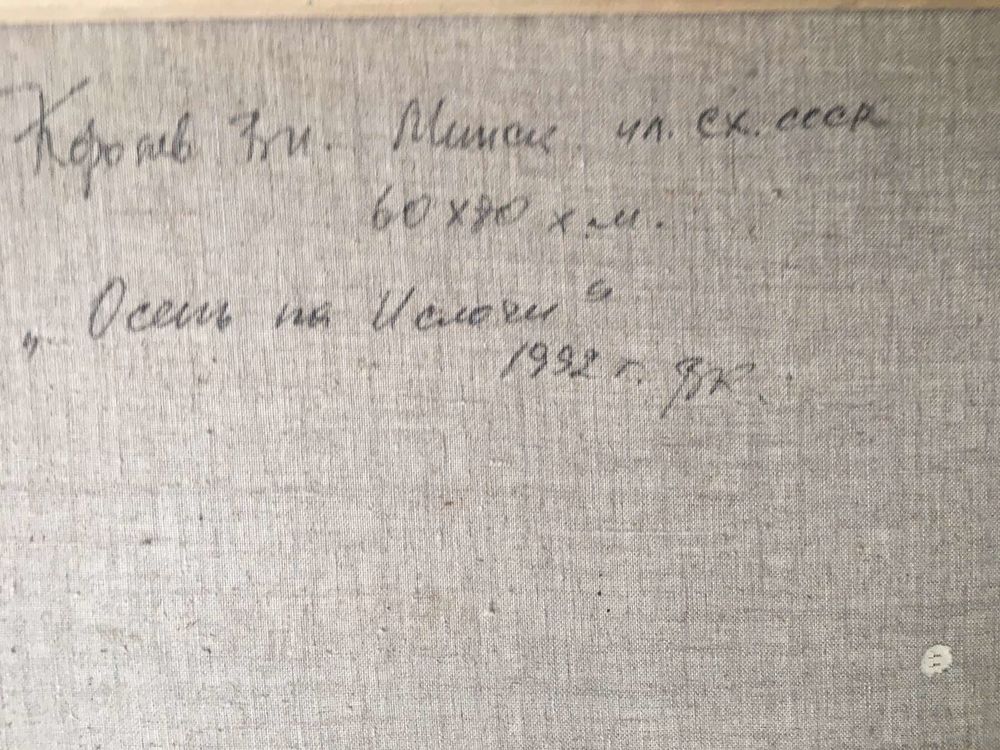 Королёв Вл. Минск чл. СХ. СССР
60х80 х.м.
„Осень на Ислочи“
1992 г. ВК.